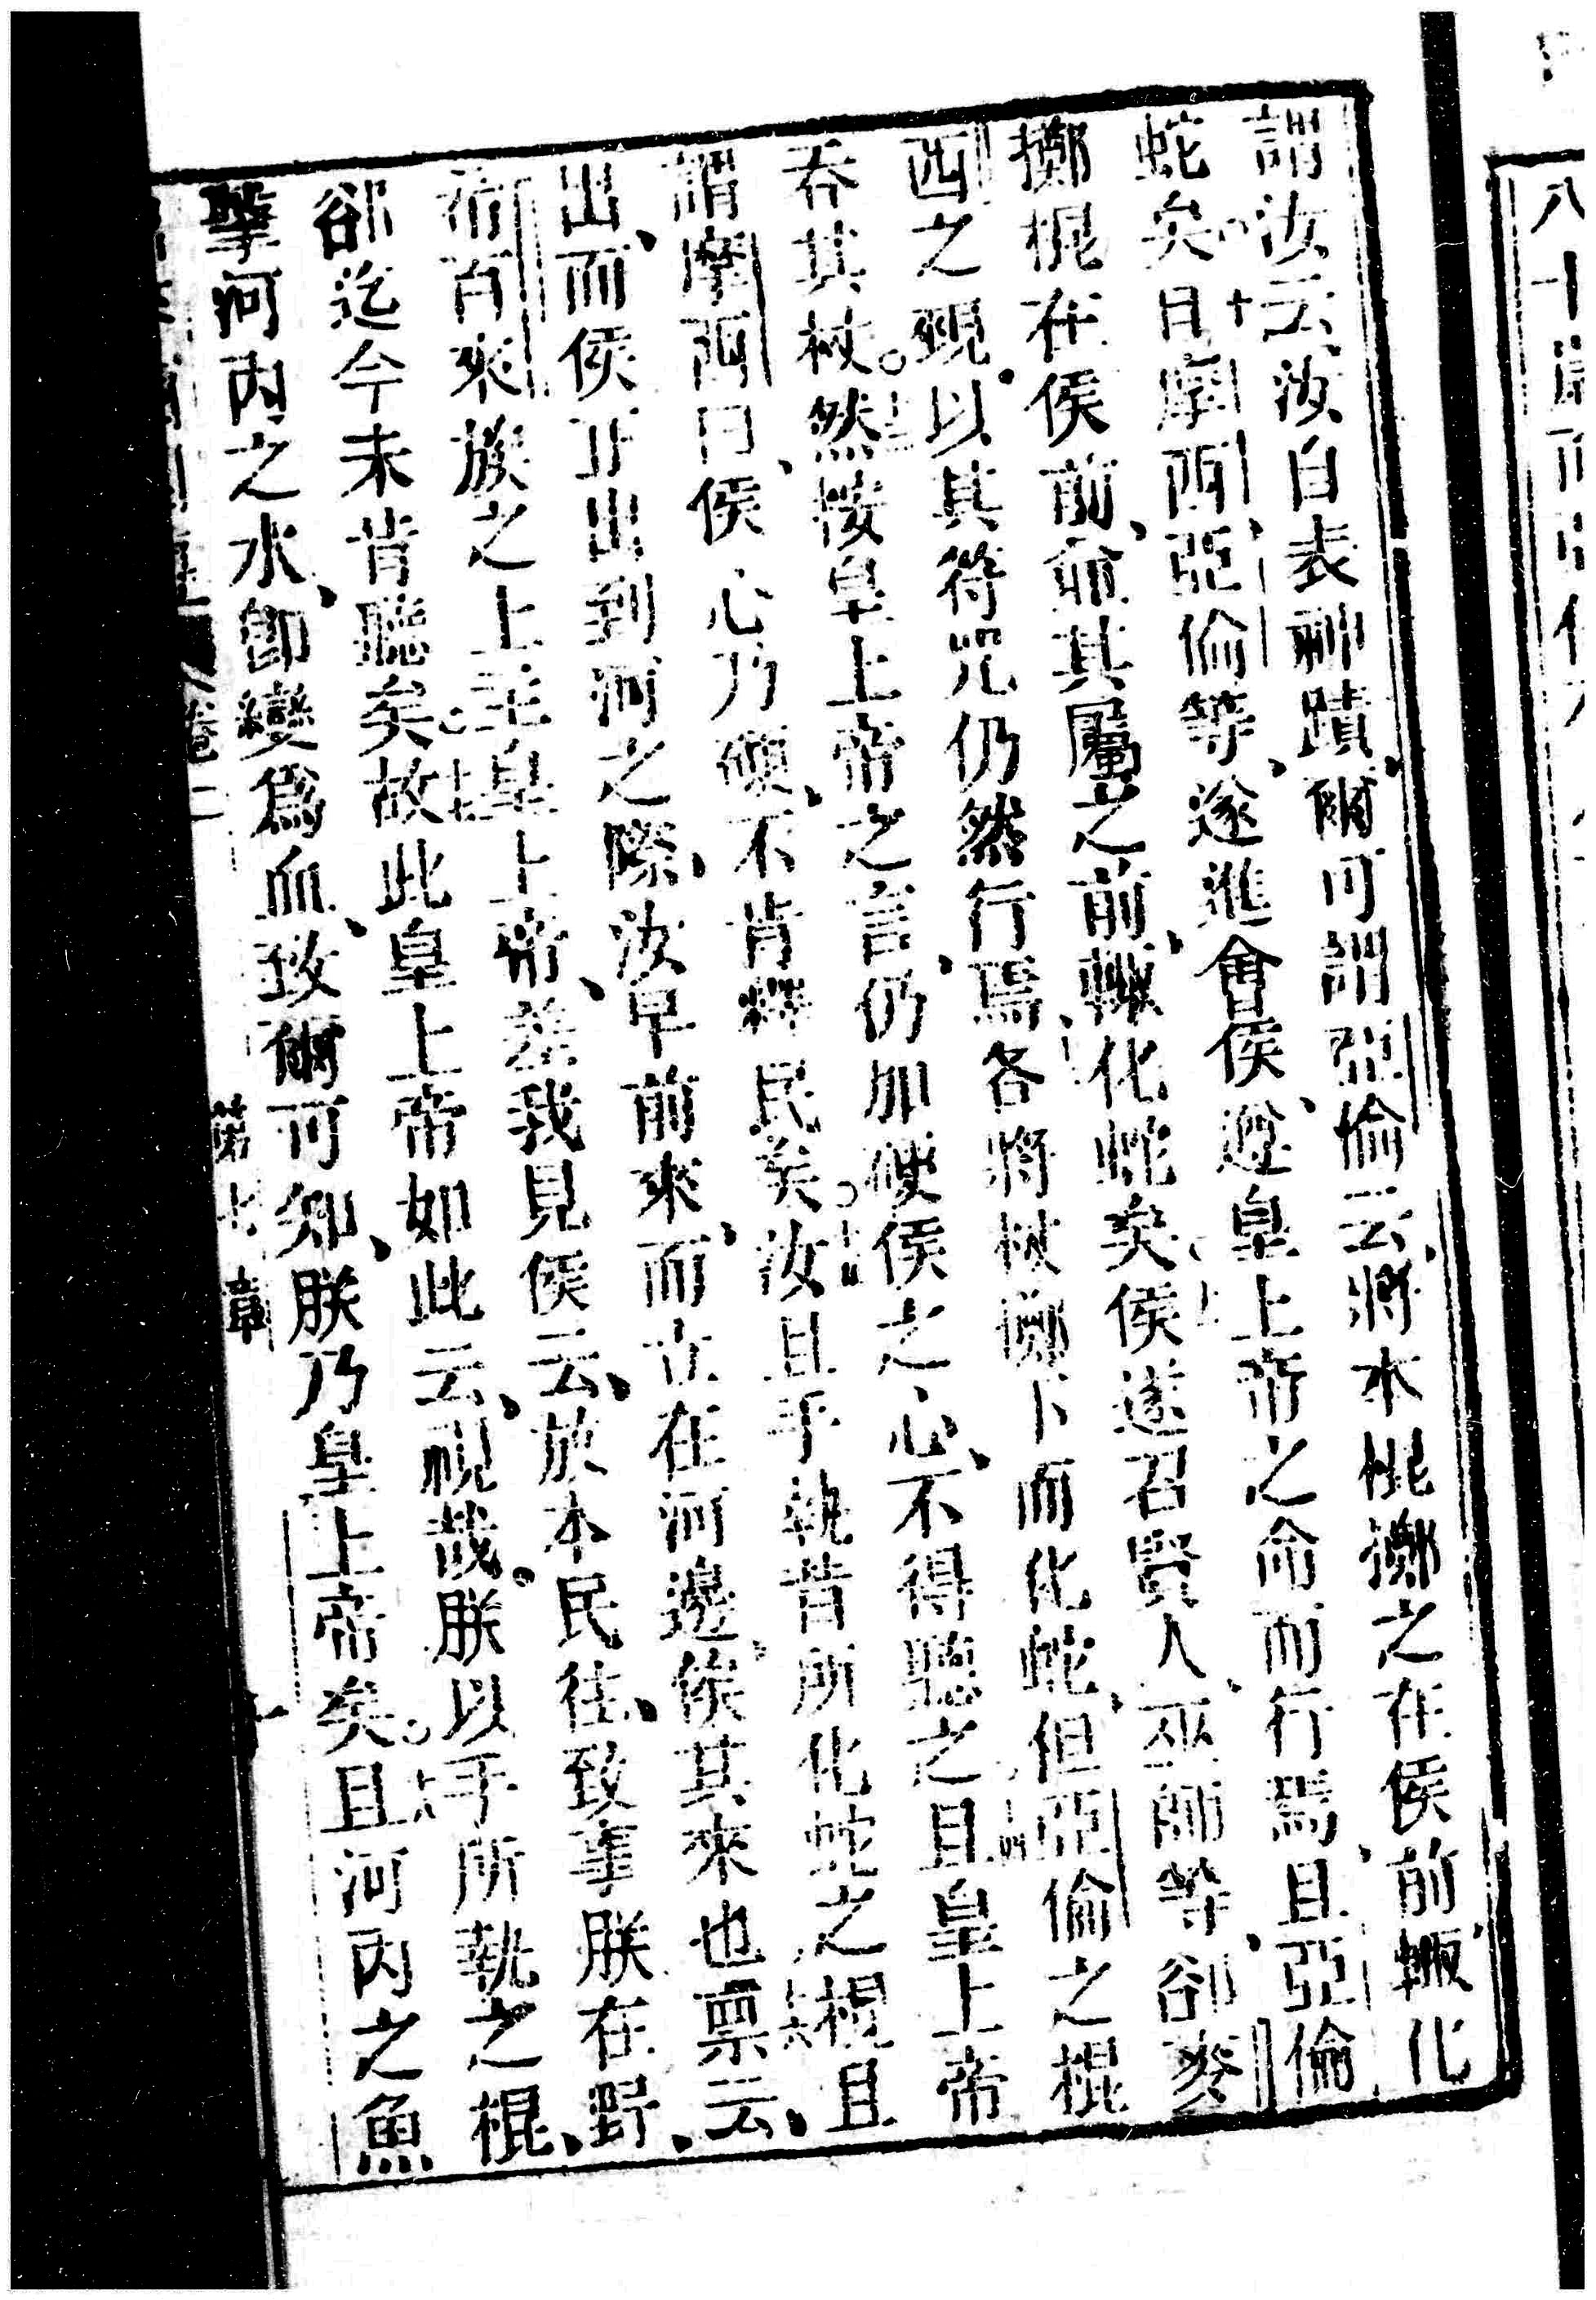 謂汝云、汝自表神蹟、爾可謂亞倫云、將本棍擲之在侯前、輙化
蛇矣。十日摩西、亞倫等、遂進會侯、遵皇上帝之命而行焉、且亞倫
擲棍在侯前、並其屬之前、輙化蛇矣。侯遂召賢人、巫師等、卻麥
西之現、以其符咒仍然行焉、各將杖擲下而化蛇、但亞倫之棍
吞其杖。然按皇上帝之言、仍加硬侯之心、不得聽之。且皇上帝
謂摩西曰、侯心乃硬、不肯釋民矣。汝且手執昔所化蛇之棍、且
出、而侯正出到河之際、汝早前來、而立在河邊、俟其來也。稟云、
希百來族之上主皇上帝、差我見侯云、放本民往、致事朕在野、
卻迄今未肯聽矣。十七故此皇上帝如此云、視哉。朕以手所執之棍、
擊河內之水、即變為血、致爾可知、朕乃皇上帝矣。十八且河內之魚
卷二 第七章